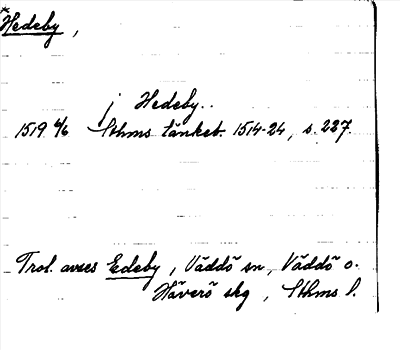 *Hedeby,
j Hedeby..
1519 4/6 Sthms tänkeb. 1514-24, s. 227.
Trol. avses Edeby, Väddö sn, Väddö o.
Häverö skg, Sthms l.